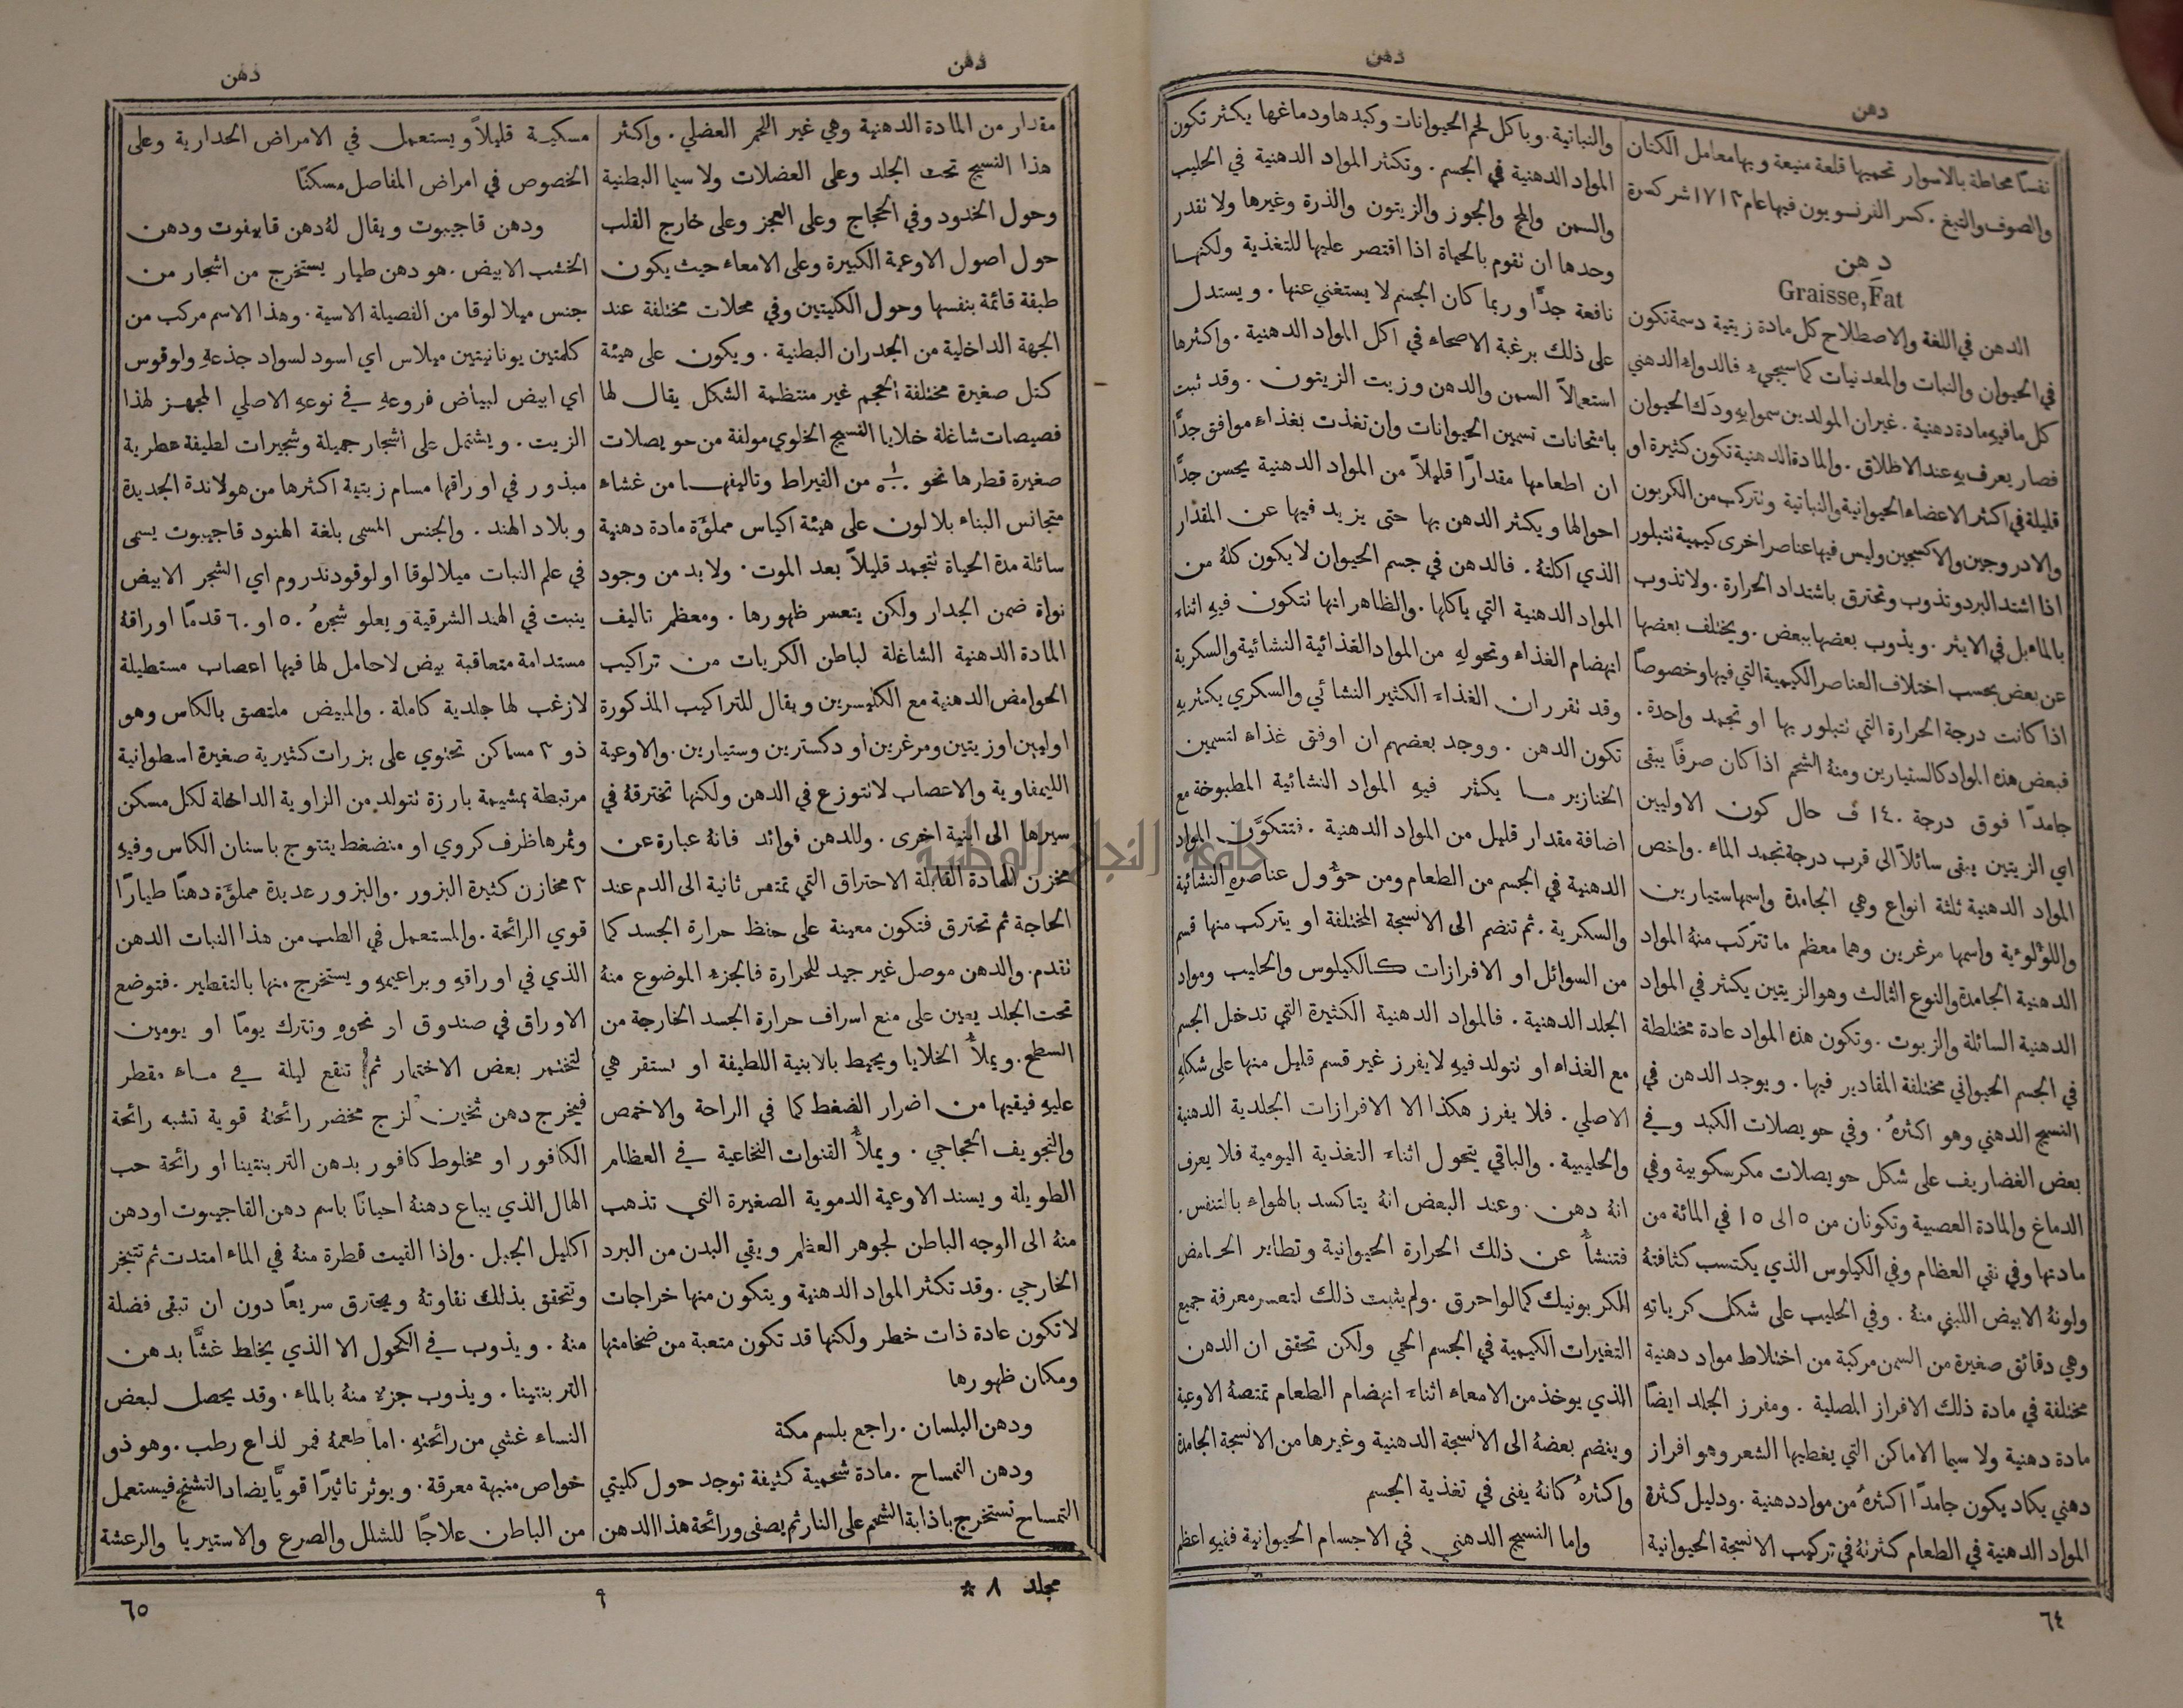 دهن
دهن
نفسًا محاطة بالاسوار تحميها قلعة منيعة وبها معامل الكتان
والصوف والتبغ. كسر الفرنسويون فيها عام ١٧١٢ شر كسرة
دهن
Graisse, Fat
الدهن في اللغة والاصطلاح كل مادة زيتية دسمة تكون
في الحيوان والنبات والمعدنيات كما سيجيء فالدواء الدهني
كل ما فيه مادة دهنية. غير ان المولدين سموا به ودَك الحيوان
فصار يعرف به عند الاطلاق. والمادة الدهنية تكون كثيرة او
قليلة في اكثر الاعضاء الحيوانية والنباتية وتتركب من الكربون
والادروجين والاكسجين وليس فيها عناصر اخرى كيمية تتبلور
اذا اشتد البرد وتذوب وتحترق باشتداد الحرارة. ولا تذوب
بالماء بل في الايثر. ويذوب بعضها ببعض. ويختلف بعضها
عن بعض بحسب اختلاف العناصر الكيمية التي فيها وخصوصًا
اذا كانت درجة الحرارة التي تتبلور بها او تجمد واحدة.
فبعض هذه المواد كالستيارين ومنهُ الشحم اذا كان صرفًا يبقى
جامدًا فوق درجة ١٤٠ ف حال كون الاوليين
اي الزيتين يبقى سائلاً الى قرب درجة تجمد الماء. واخص
المواد الدهنية ثلثة انواع وهي الجامدة واسمها ستيارين
واللؤلوئية واسمها مرغرين وهما معظم ما تتركب منهُ المواد
الدهنية الجامدة والنوع الثالث وهو الزيتين يكثر في المواد
الدهنية السائلة والزيوت. وتكون هذه المواد عادة مختلطة
في الجسم الحيواني مختلفة المقادير فيها. ويوجد الدهن في
النسيج الدهني وهو اكثرهُ. وفي حويصلات الكبد وفي
بعض الغضاريف على شكل حويصلات مكرسكوبية وفي
الدماغ والمادة العصبية وتكونان من ٥ الى ١٥ في المائة من
مادتها وفي نقي العظام وفي الكيلوس الذي يكتسب كثافتهُ
ولونهُ الابيض اللبني منهُ. وفي الحليب على شكل كرياتهِ
وهي دقائق صغيرة من السمن مركبة من اختلاط مواد دهنية
مختلفة في مادة ذلك الافراز المصلية. ومفرز الجلد ايضًا
مادة دهنية ولا سيما الاماكن التي يغطيها الشعر وهو افراز
دهني يكاد يكون جامدًا اكثرهُ من مواد دهنية. ودليل كثرة
المواد الدهنية في الطعام كثرتهُ في تركيب الانسجة الحيوانية
والنباتية. وباكل لحم الحيوانات وكبدها ودماغها يكثر تكون
المواد الدهنية في الجسم. وتكثر المواد الدهنية في الحليب
والسمن والمح والجوز والزيتون والذرة وغيرها ولا تقدر
وحدها ان تقوم بالحياة اذا اقتصر عليها للتغذية ولكنها
نافعة جدًّا وربما كان الجسم لا يستغني عنها. ويستدل
على ذلك برغبة الاصحاء في اكل المواد الدهنية. واكثرها
استعمالاً السمن والدهن وزيت الزيتون. وقد ثبت
بامتحانات تسمين الحيوانات وان تغذت بغذاء موافق جدًّا
ان اطعامها مقدارًا قليلاً من المواد الدهنية يحسن جدًّا
احوالها ويكثر الدهن بها حتى يزيد فيها عن المقدار
الذي اكلتهُ. فالدهن في جسم الحيوان لا يكون كلهُ من
المواد الدهنية التي ياكلها. والظاهر انها تتكون فيهِ اثناء
انهضام الغذاء وتحولهِ من المواد الغذائية النشائية والسكرية
وقد تقرر ان الغذاء الكثير النشائي والسكري يكثر بهِ
تكون الدهن. ووجد بعضهم ان اوفق غذاء لتسمين
الخنازير ما يكثر فيهِ المواد النشائية المطبوخة مع
اضافة مقدار قليل من المواد الدهنية. فتتكوَّن المواد
الدهنية في الجسم من الطعام ومن حوُّول عناصرهِ النشائية
والسكرية. ثم تنضم الى الانسجة المختلفة او يتركب منها قسم
من السوائل او الافرازات كالكيلوس والحليب ومواد
الجلد الدهنية. فالمواد الدهنية الكثيرة التي تدخل الجسم
مع الغذاء او تتولد فيهِ لا يفرز غير قسم قليل منها على شكلهِ
الاصلي. فلا يفرز هكذا الا الافرازات الجلدية الدهنية
والحليبية. والباقي يتحول اثناء التغذية اليومية فلا يعرف
انهُ دهن. وعند البعض انهُ يتاكسد بالهواء بالتنفس.
فتنشأُ عن ذلك الحرارة الحيوانية وتطاير الحامض
الكربونيك كما لو احرق. ولم يثبت ذلك لتعسر معرفة جميع
التغيرات الكيمية في الجسم الحي ولكن تحقق ان الدهن
الذي يوخذ من الامعاء اثناء انهضام الطعام تمتصهُ الاوعية
وينضم بعضهُ الى الانسجة الدهنية وغيرها من الانسجة الجامدة
واكثرهُ كانهُ يفنى في تغذية الجسم
واما النسيج الدهني في الاجسام الحيوانية ففيهِ اعظم
٦٤
دهن
دهن
مقدار من المادة الدهنية وهي غير اللحم العضلي. واكثر
هذا النسيج تحت الجلد وعلى العضلات ولا سيما البطنية
وحول الخدود وفي الحجاج وعلى العجز وعلى خارج القلب
حول اصول الاوعية الكبيرة وعلى الامعاء حيث يكون
طبقة قائمة بنفسها وحول الكليتين وفي محلات مختلفة عند
الجهة الداخلية من الجدران البطنية. ويكون على هيئة
كتل صغيرة مختلفة الحجم غير منتظمة الشكل يقال لها
فصيصات شاغلة خلايا النسيج الخلوي مولفة من حويصلات
صغيرة قطرها نحو من القيراط وتاليفها من غشاء
متجانس البناء بلا لون على هيئة اكياس مملوَّة مادة دهنية
سائلة مدة الحياة تتجمد قليلاً بعد الموت. ولا بد من وجود
نواة ضمن الجدار ولكن يتعسر ظهورها. ومعظم تاليف
المادة الدهنية الشاغلة لباطن الكريات من تراكيب
الحوامض الدهنية مع الكليسرين ويقال للتراكيب المذكورة
اوليين او زيتين ومرغرين او دكسترين وستيارين. والاوعية
الليمفاوية والاعصاب لا تتوزع في الدهن ولكنها تخترقهُ في
سيرها الى ابنية اخرى. وللدهن فوائد فانهُ عبارة عن
مخزن للمادة القابلة الاحتراق التي تمتص ثانية الى الدم عند
الحاجة ثم تحترق فتكون معينة على حفظ حرارة الجسد كما
تقدم. والدهن موصل غير جيد للحرارة فالجزء الموضوع منهُ
تحت الجلد يعين على منع اسراف حرارة الجسد الخارجة من
السطح. ويملأُ الخلايا ويحيط بالابنية اللطيفة او تستقر هي
عليهِ فيقيها من اضرار الضغط كما في الراحة والاخمص
والتجويف الحجاجي. ويملأُ القنوات النخاعية في العظام
الطويلة ويسند الاوعية الدموية الصغيرة التي تذهب
منهُ الى الوجه الباطن لجوهر العظم ويقي البدن من البرد
الخارجي. وقد تكثر المواد الدهنية ويتكون منها خراجات
لا تكون عادة ذات خطر ولكنها قد تكون متعبة من ضخامتها
ومكان ظهورها
ودهن البلسان. راجع بلسم مكة
ودهن التمساح. مادة شحمية كثيفة توجد حول كليتي
التمساح تستخرج باذابة الشحم على النار ثم يصفى ورائحة هذا الدهن
مسكية قليلاً ويستعمل في الامراض الحدارية وعلى
الخصوص في امراض المفاصل مسكنًا
ودهن قاجيبوت ويقال لهُ دهن قايفوت ودهن
الخشب الابيض. هو دهن طيار يستخرج من اشجار من
جنس ميلالوقا من الفصيلة الاسية. وهذا الاسم مركب من
كلمتين يونانيتين ميلاس اي اسود لسواد جذعهِ ولوقوس
اي ابيض لبياض فروعهِ في نوعهِ الاصلي المجهز لهذا
الزيت. ويشتمل على اشجار جميلة وشجيرات لطيفة عطرية
مبذور في اوراقها مسام زيتية اكثرها من هولاندة الجديدة
وبلاد الهند. والجنس المسمى بلغة الهنود قاجيبوت يسمى
في علم النبات ميلالوقا او لوقودندروم اي الشجر الابيض
ينبت في الهند الشرقية ويعلو شجرهُ ٥٠ او ٦٠ قدمًا اوراقهُ
مستدامة متعاقبة بيض لا حامل لها فيها اعصاب مستطيلة
لا زغب لها جلدية كاملة. والمبيض ملتصق بالكاس وهو
ذو ٣ مساكن تحتوي على بزرات كثيرية صغيرة اسطوانية
مرتبطة بمشيمة بارزة تتولد من الزاوية الداخلة لكل مسكن
وثمرها ظرف كروي او منضغط يتتوج باسنان الكاس وفيهِ
٣ مخازن كثيرة البزور. والبزور عديدة مملوَّة دهنًا طيارًا
قوي الرائحة. والمستعمل في الطب من هذا النبات الدهن
الذي في اوراقهِ وبراعيمهِ ويستخرج منها بالتقطير. فتوضع
الاوراق في صندوق او نحوهِ وتترك يومًا او يومين
لتختمر بعض الاختمار ثم تنقع ليلة في ماء مقطر
فيخرج دهن ثخين لزج مخضر رائحتهُ قوية تشبه رائحة
الكافور او مخلوط كافور بدهن التربنتينا او رائحة حب
الهال الذي يباع دهنهُ احيانًا باسم دهن القاجيبوت او دهن
اكليل الجبل. واذا القيت قطرة منهُ في الماء امتدت ثم تتبخر
وتتحقق بذلك نقاوتهُ ويحترق سريعًا دون ان تبقى فضلة
منهُ. ويذوب في الكحول الا الذي يخلط غشًّا بدهن
التربنتينا. ويذوب جزء منهُ بالماء. وقد يحصل لبعض
النساء غشي من رائحتهِ. اما طعمهُ فمر لذاع رطب. وهو ذو
خواص منبهة معرقة. ويوثر تاثيرًا قويًّا يضاد التشنج فيستعمل
من الباطن علاجًا للشلل والصرع والاستيريا والرعشة
مجلد ٨ *
٩
٦٥
جامعة النجاح الوطنية